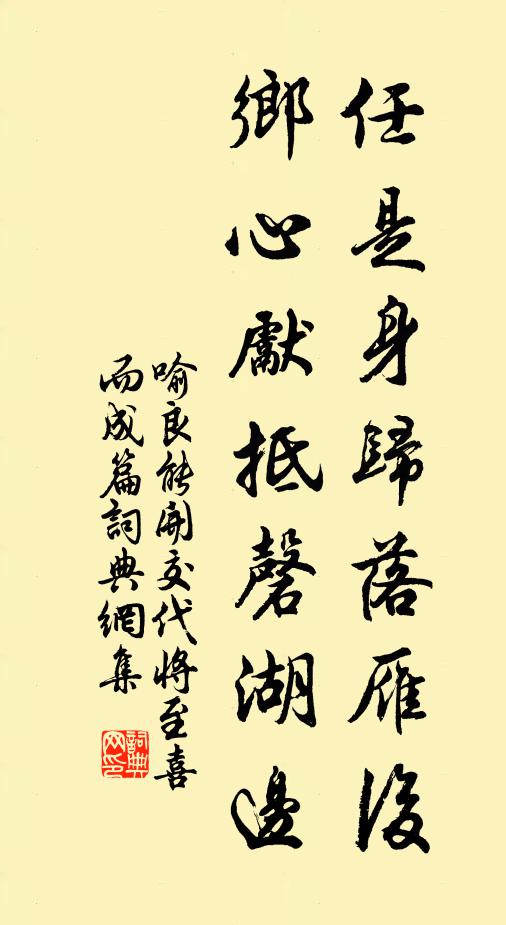 任是身歸落雁後
鄉心獻抵磬湖邊
喻良能聞交代將至喜
而成篇詞典網集
詞典網印